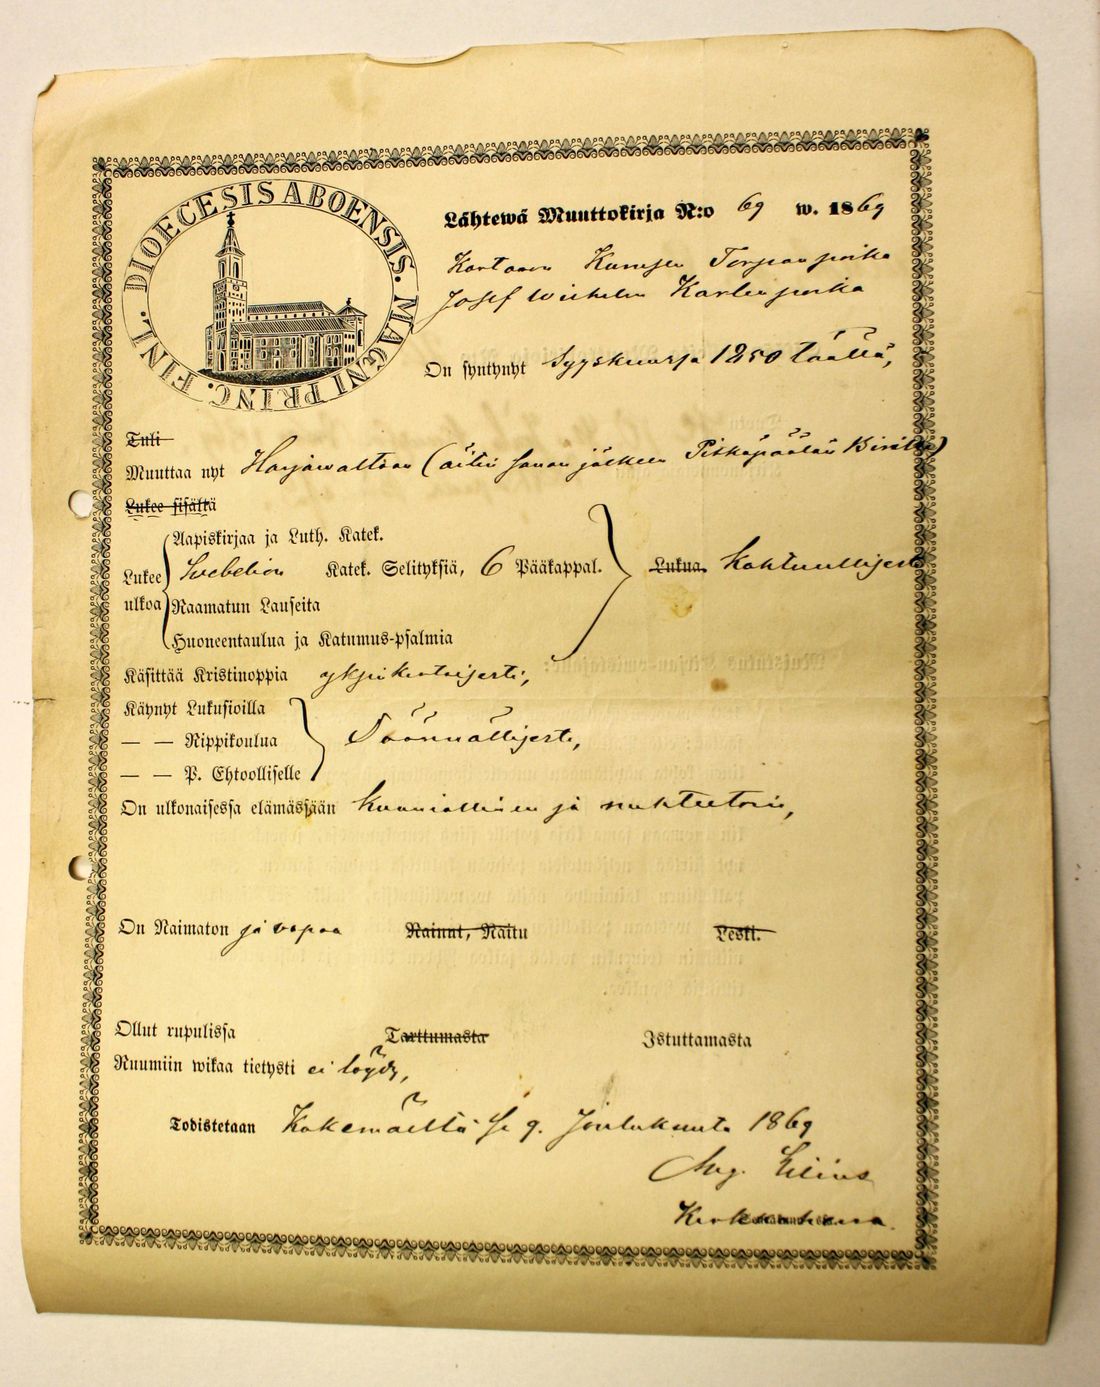 DIOECESIS ABOENSIS. MAGNI PRINC. FINL.
Lähtewä Muuttokirja N:o 69 w. 1869
Torpan poika
Josef Wilhelm Karlen poika
On syntynyt Syyskuussa 1850 täällä,
Tuli
Muuttaa nyt Harjawaltaan (äitin sanan jälkeen
Lukee sisältä
Aapiskirjaa ja Luth. Katek.
Lukee ulkoa Svebelion Katek. Selityksiä, 6 Pääkappal. Lukua Kohtuullisesti
Raamatun Lauseita
Huoneentaulua ja Katumus-psalmia
Käsittää Kristinoppia yksikertaisesti,
Käynyt Lukusioilla
— — Rippikoulua Säännöllisesti,
— — P. Ehtoolliselle
On ulkonaisessa elämässään kunniallinen ja nuhteetoin,
On Naimaton ja vapaa Nainut, Naitu Leski.
Ollut rupulissa Tarttumasta Istuttamasta
Ruumiin wikaa tietysti ei löydy,
Todistetaan Kokemäeltä se 9. Joulukuuta 1869
Aug. Lilius
Kirkkoherra.